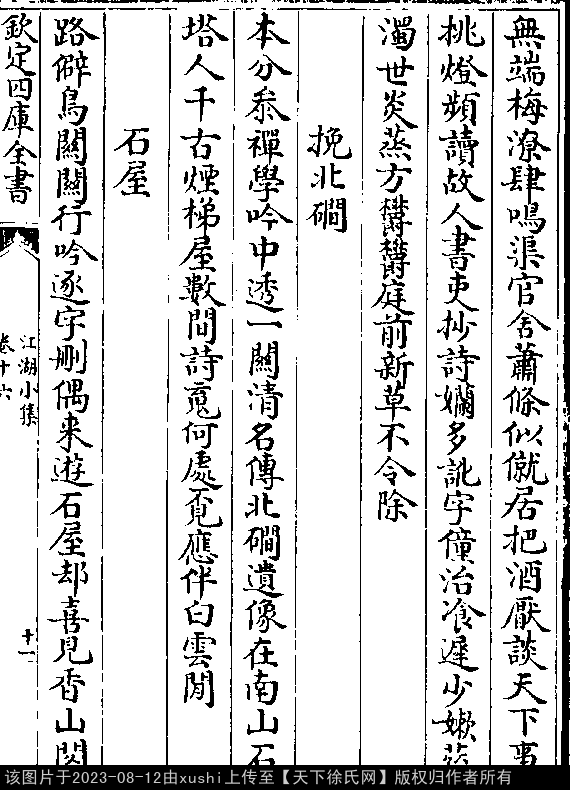 無端梅潦肆鳴渠官舍蕭條似僦居把酒厭談天下事
挑燈頻讀故人書吏抄詩爛多訛字僮治飡遲少嫰蔬
濁世炎蒸方欝欝庭前新草不令除
挽北磵
本分叅禪學吟中透一關清名傳北磵遺像在南山石
塔人千古煙梯屋數間詩䰟何處覓應伴白雲閒
石屋
路僻鳥關關行吟逐字刪偶来遊石屋却喜見香山関
欽定四庫全書
江湖小集
卷十六
十一
该图片于2023-08-12由xushi上传至【天下徐氏网】版权归作者所有